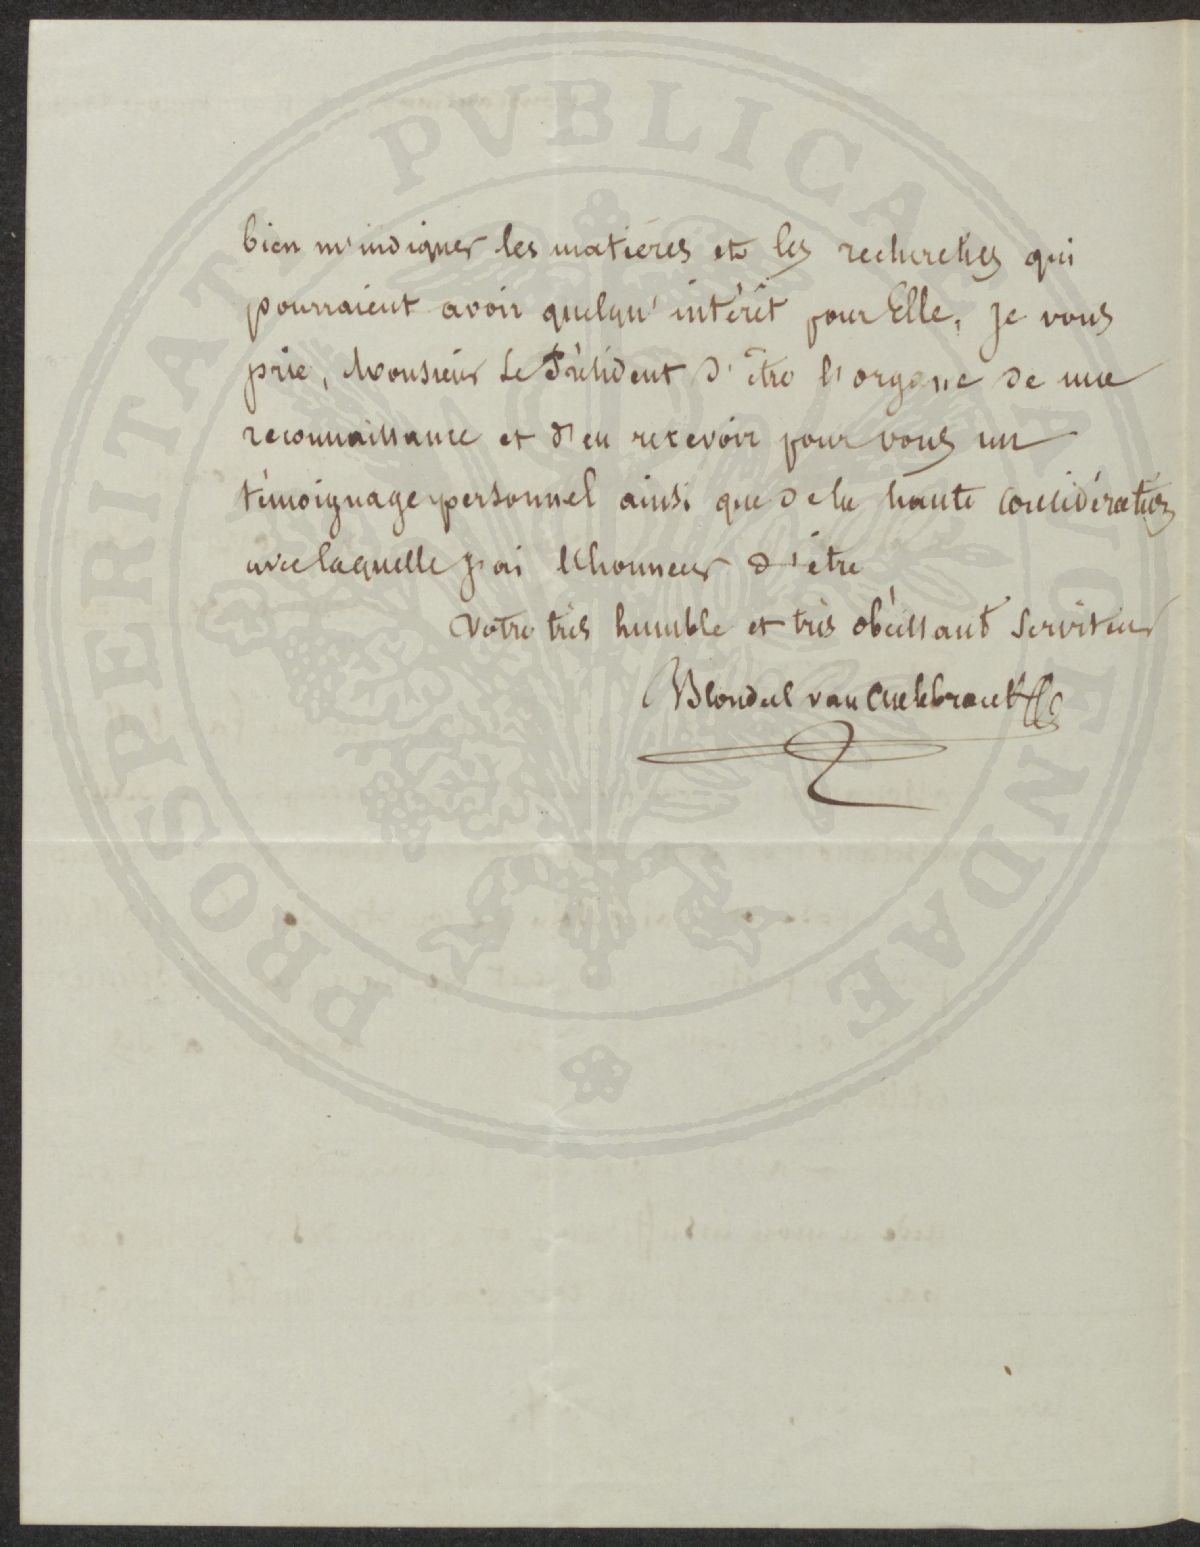 PROSPERITATI PVBLICAE AVGENDAE
bien m'indiquer les matières et les recherches qui
pourraient avoir quelqu'intérêt pour Elle. Je vous
prie, Monsieur Le Président d'être l'organe de ma
reconnaissance et d'en recevoir pour vous un
témoignage personnel ainsi que de la haute considération
avec laquelle j'ai l'honneur d'être
Votre très humble et très obéissant Serviteur
Blondeel van Cuelebrouck